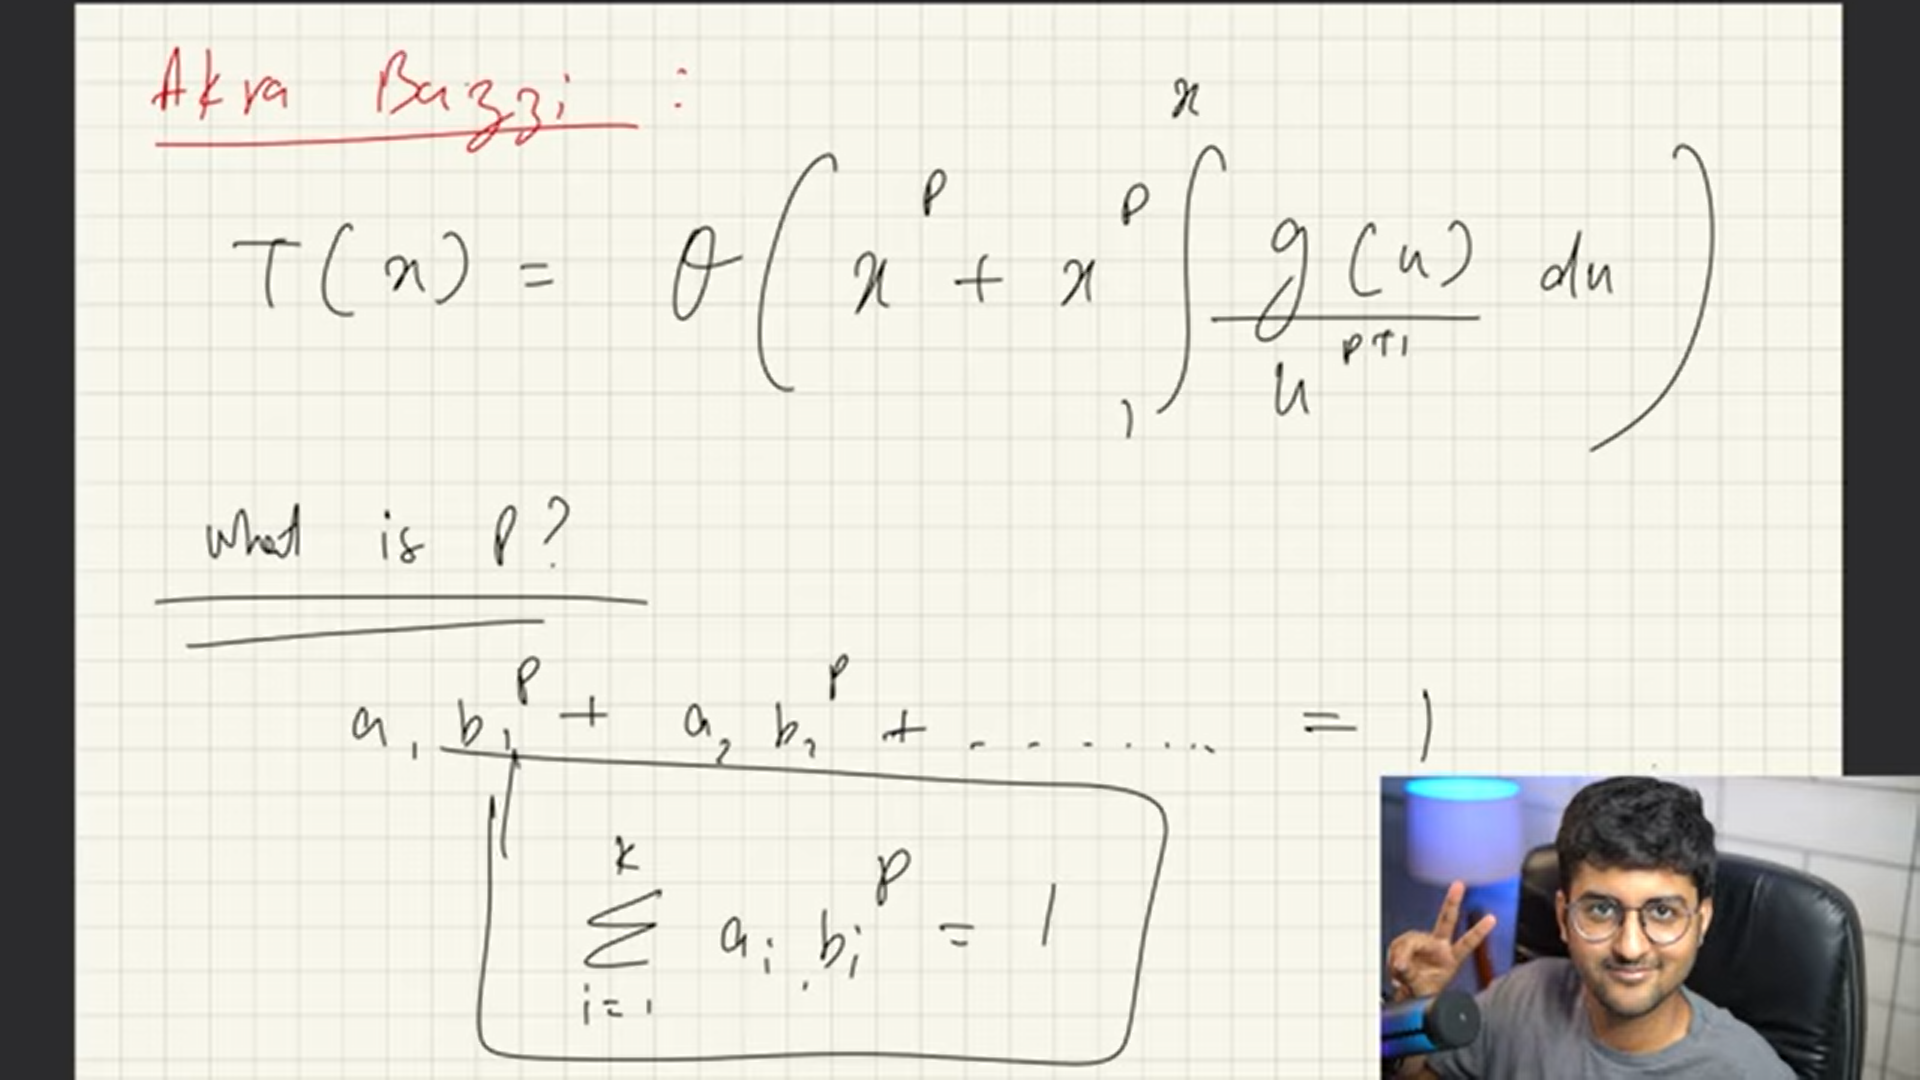 Akra Bazzi :
T(x) = θ( x^p + x^p ∫_1^x g(u)/u^{p+1} du )
What is p?
a₁ b₁^p + a₂ b₂^p + ......... = 1
∑_{i=1}^{k} a_i b_i^p = 1